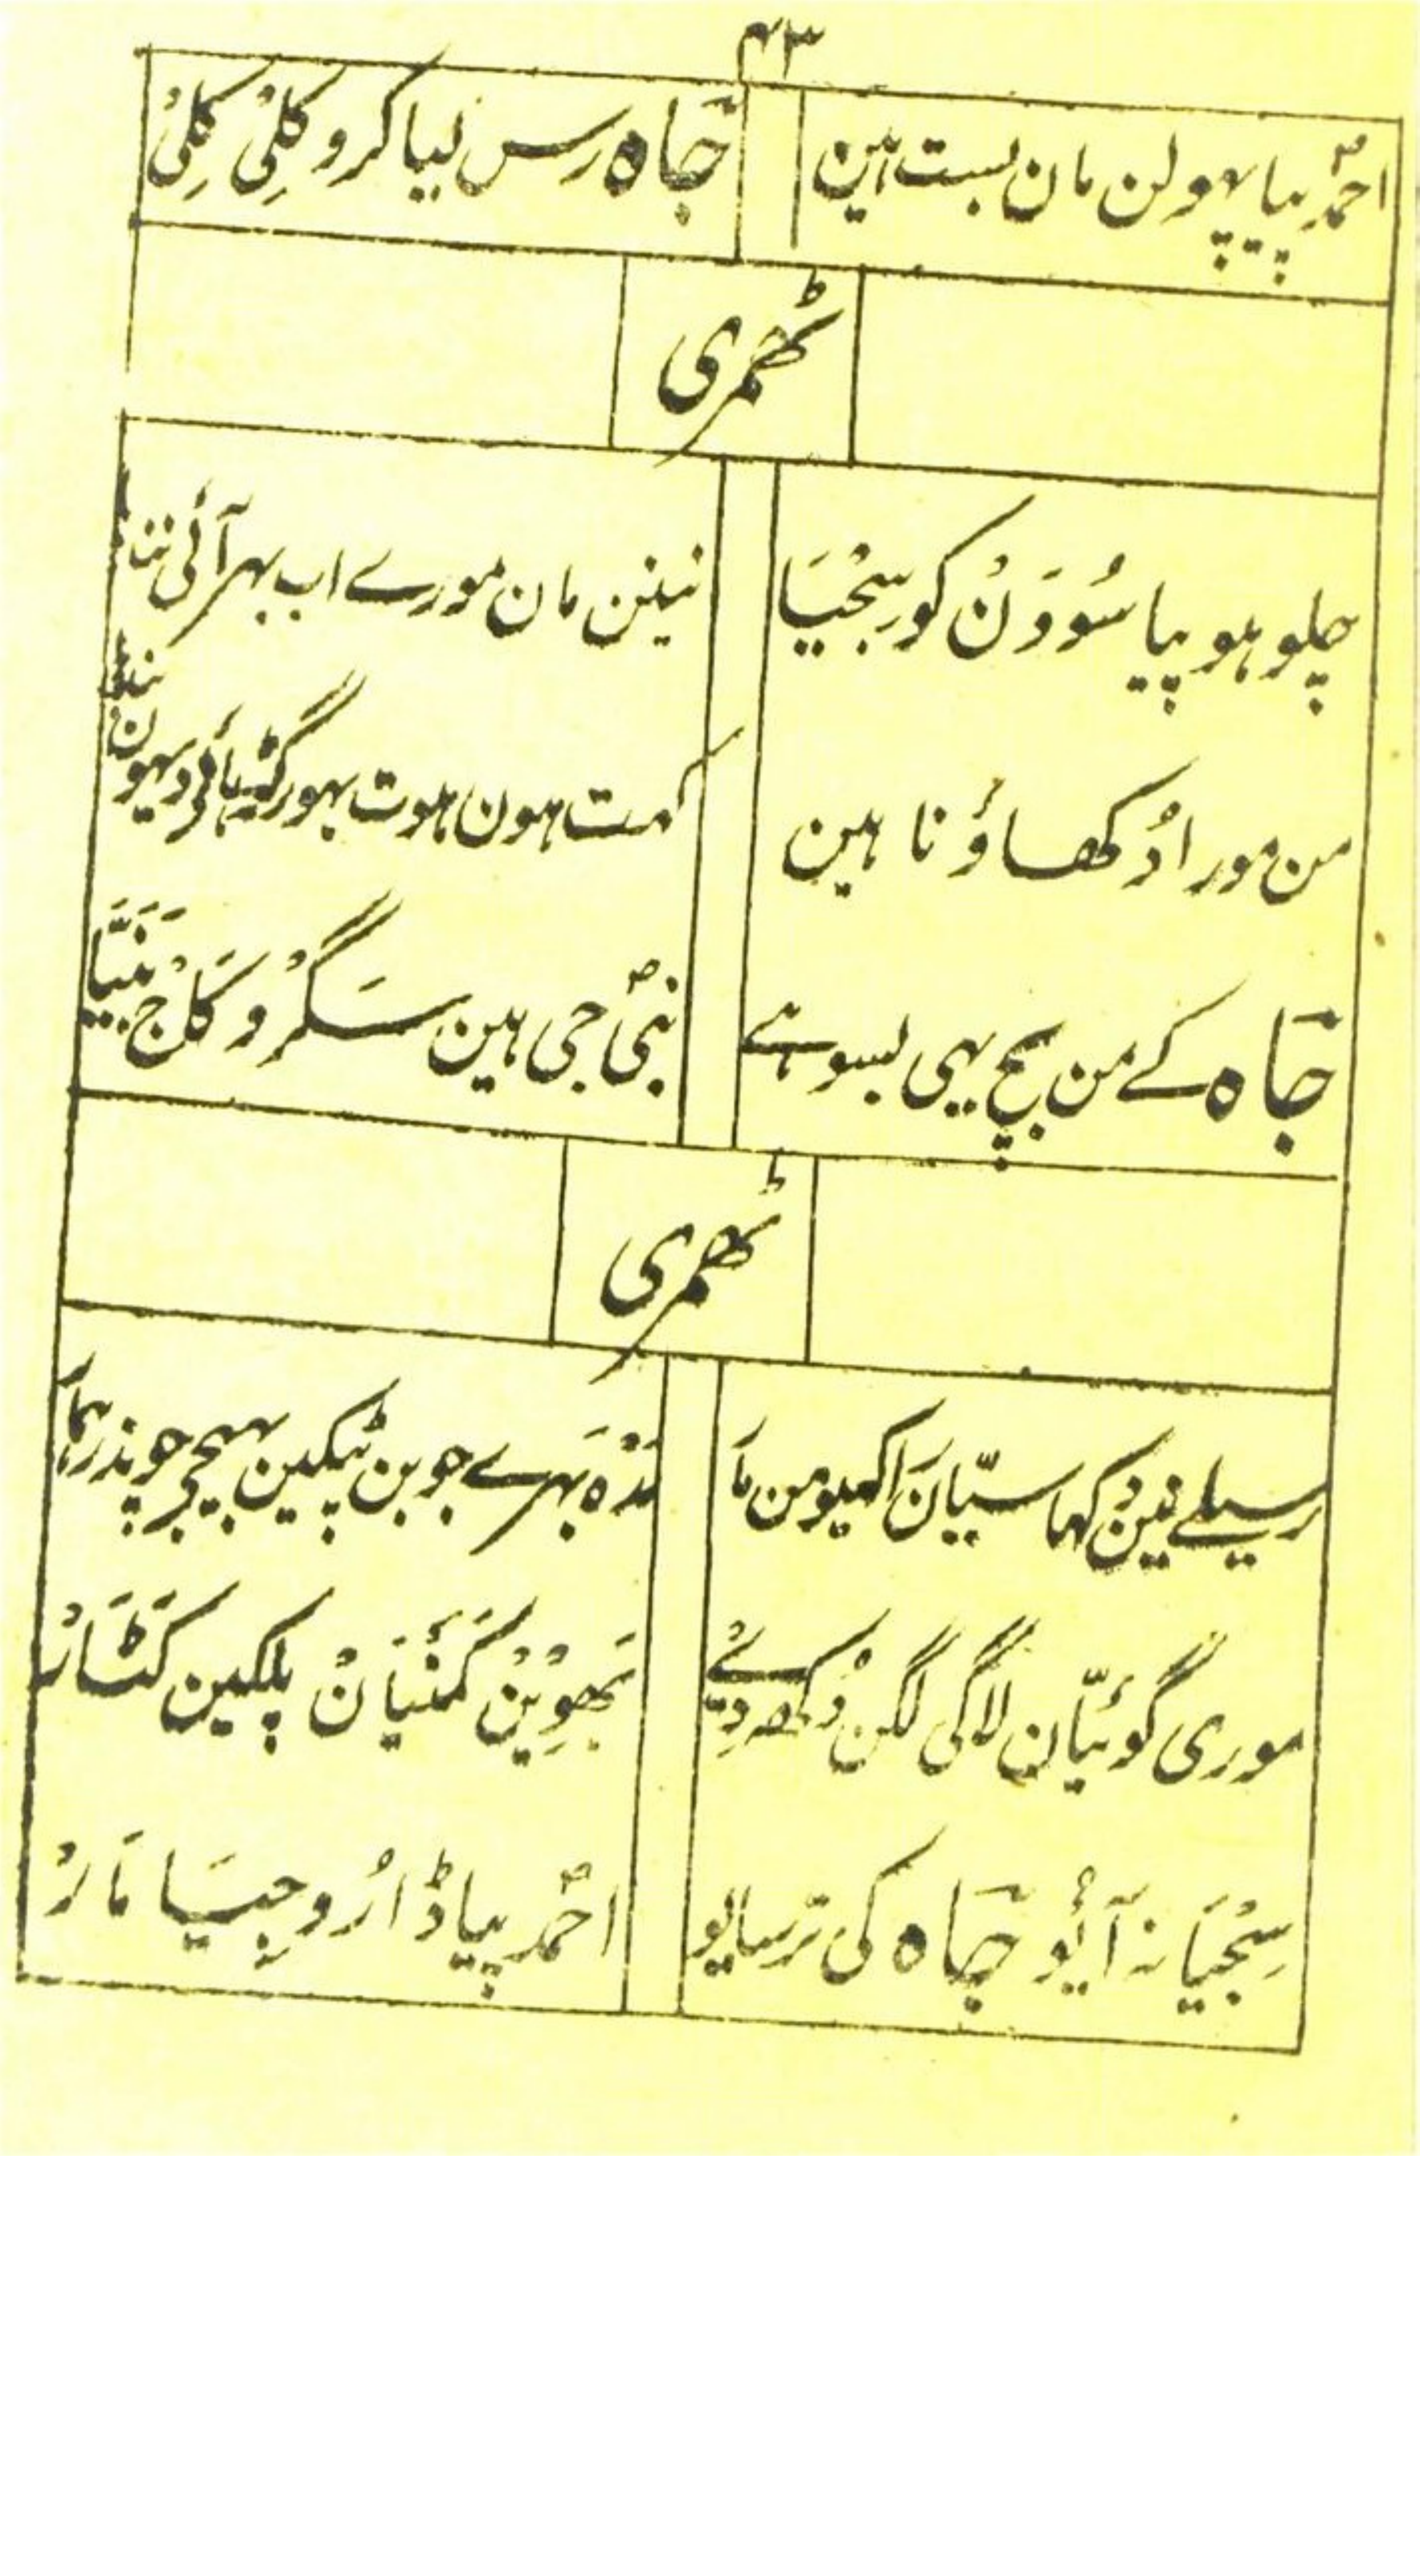 ۴۳
احمدؐ پیا پھولن مان بست ہین
جاہ رس لیا کرو کلیْ کلیْ
ٹھمری
چلو ہو پیا سُووَنْ کو سِجْیَا
نینن مان مورے اب بہر آئی
من مورا دُکھاؤ نا ہین
کہت ہون ہوت بہور
جاہ کے من بیچ یہی بسو ہے
نبیؐ جی ہین سَگْرو کاَجْ بَنَیَّا
ٹھمری
رسیلے نین دُکہا سیّان اکہیومن مَا
مَدْہ بہرے جوبن ٹپکین بیچ
موری گوئیّان لاگی لگن دُکھ دِیئے
بَھوِیْنْ کَمَنْیَانْ پلکین کَٹَارْ
سِجْیَا نہ آئیو جاہ کی ترسایو
احمدؐ پیا ڈارُو جِیَا مَارْ